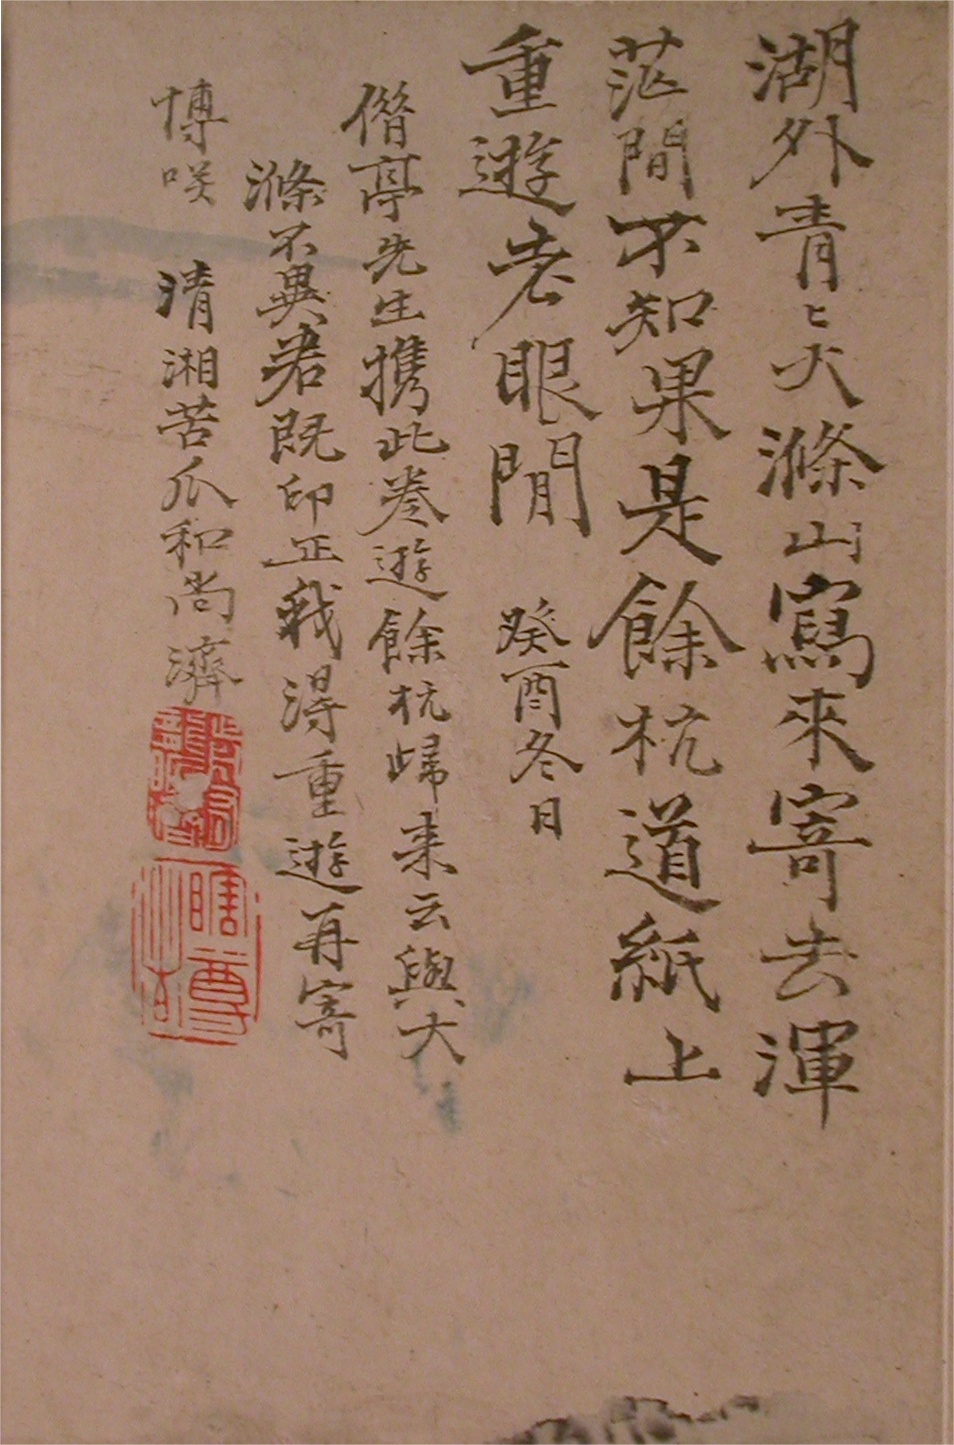 湖外青〻大滌山寫來寄去渾
茫間不知果是餘杭道紙上
重遊老眼閒 癸酉冬日
僭亭先生攜此卷遊餘杭歸来云與大
滌不異君既印正我得重遊再寄
博咲 清湘苦瓜和尚濟
瞎尊